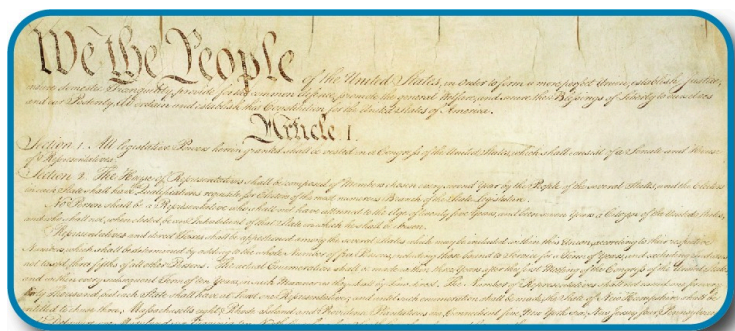 We the People
of the United States, in Order to form a more perfect Union, establish Justice,
insure domestic Tranquility, provide for the common defence, promote the general Welfare, and secure the Blessings of Liberty to ourselves
and our Posterity, do ordain and establish this Constitution for the United States of America.
Article I.
Section 1. All legislative Powers herein granted shall be vested in a Congress of the United States, which shall consist of a Senate and House
of Representatives.
Section 2. The House of Representatives shall be composed of Members chosen every second Year by the People of the several States, and the Electors
in each State shall have Qualifications requisite for Electors of the most numerous Branch of the State Legislature.
No Person shall be a Representative who shall not have attained to the Age of twenty five Years, and been seven Years a Citizen of the United States,
and who shall not, when elected, be an Inhabitant of that State in which he shall be chosen.
Representatives and direct Taxes shall be apportioned among the several States which may be included within this Union, according to their respective
Numbers, which shall be determined by adding to the whole Number of free Persons, including those bound to Service for a Term of Years, and excluding Indians
not taxed, three fifths of all other Persons. The actual Enumeration shall be made within three Years after the first Meeting of the Congress of the United States,
and within every subsequent Term of ten Years, in such Manner as they shall by Law direct. The Number of Representatives shall not exceed one for every
thirty Thousand, but each State shall have at Least one Representative; and until such enumeration shall be made, the State of New Hampshire shall be
entitled to chuse three, Massachusetts eight, Rhode Island and Providence Plantations one, Connecticut five, New York six, New Jersey four, Pennsylvania